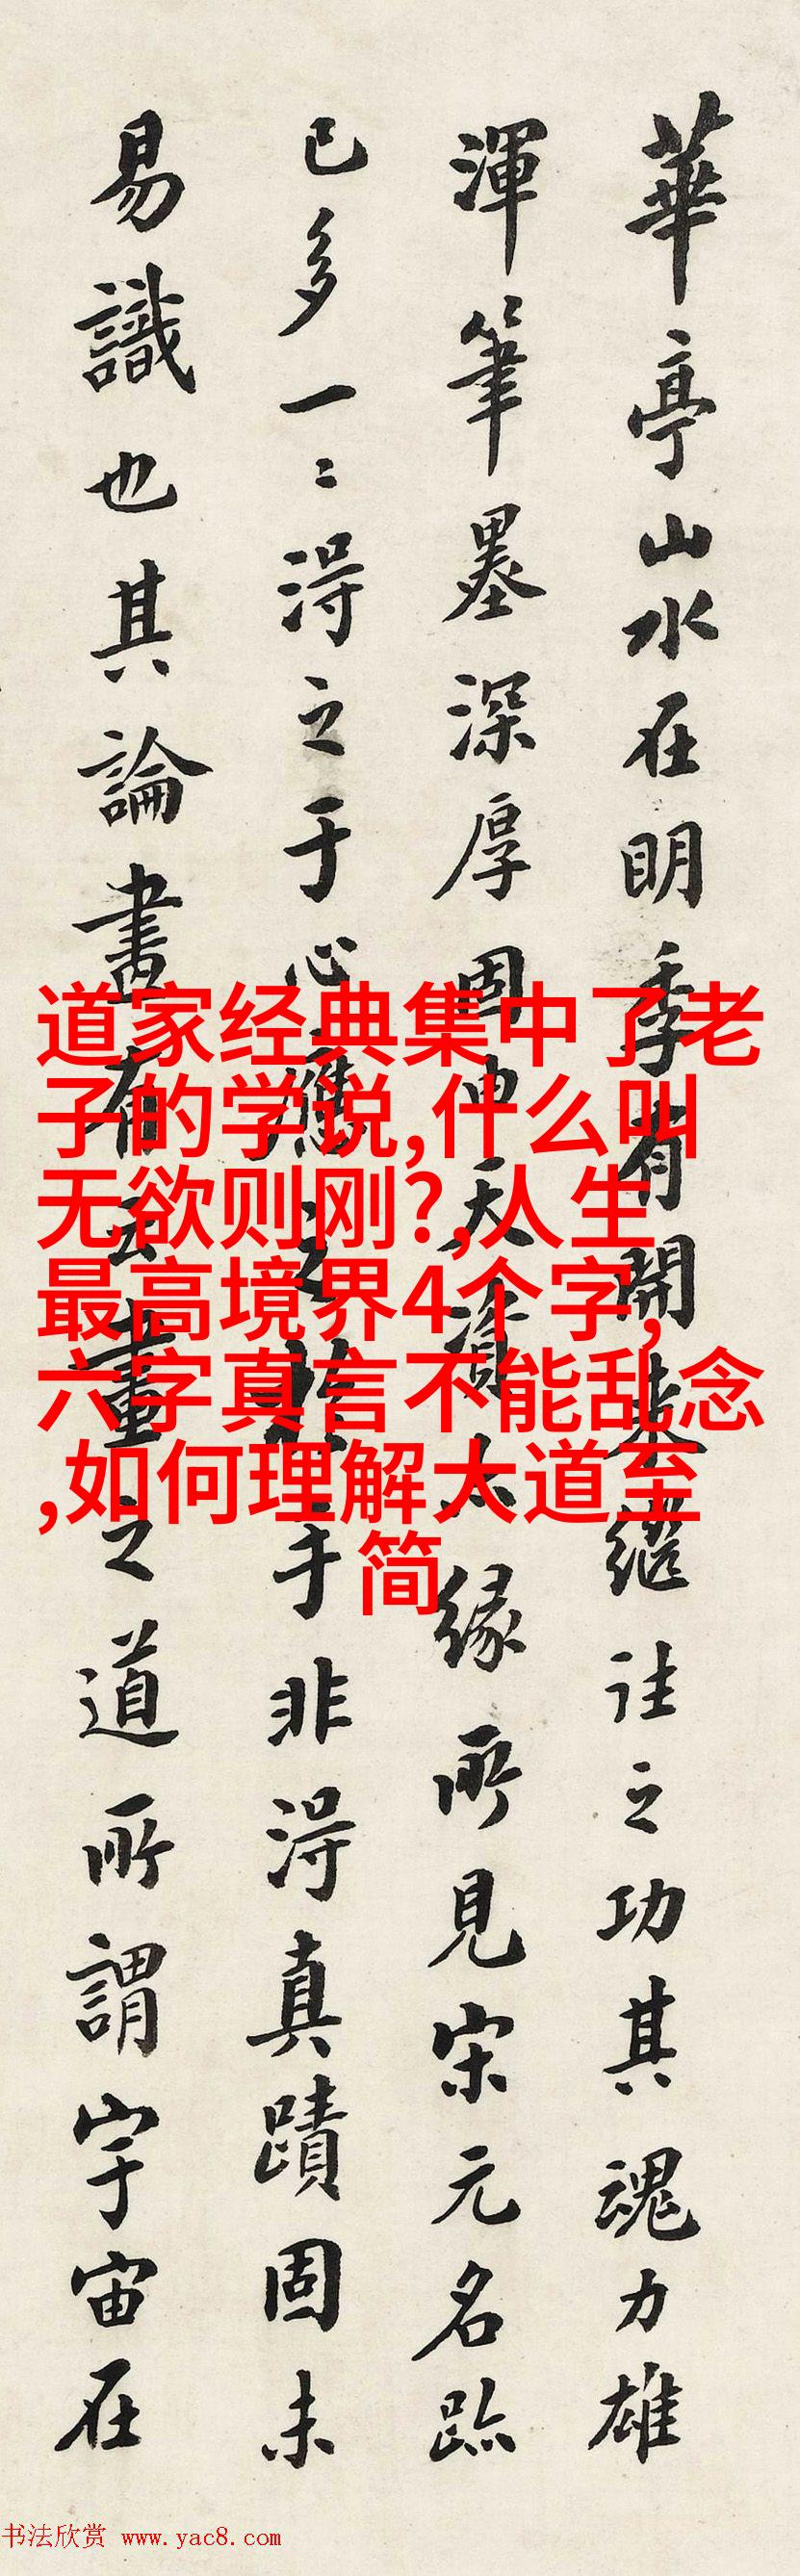 華亭山水在明季有開來繼往之功其魂力雄
渾筆墨深厚固由天資亦緣所見宋元名跡
已多一二得之于心應之於手非得真蹟固未
易識也其論畫有云畫之道所謂宇宙在
道家经典集中了老
子的学说,什么叫
无欲则刚?,人生
最高境界4个字,
六字真言不能乱念
,如何理解大道至
简
书法欣赏 www.yac8.com